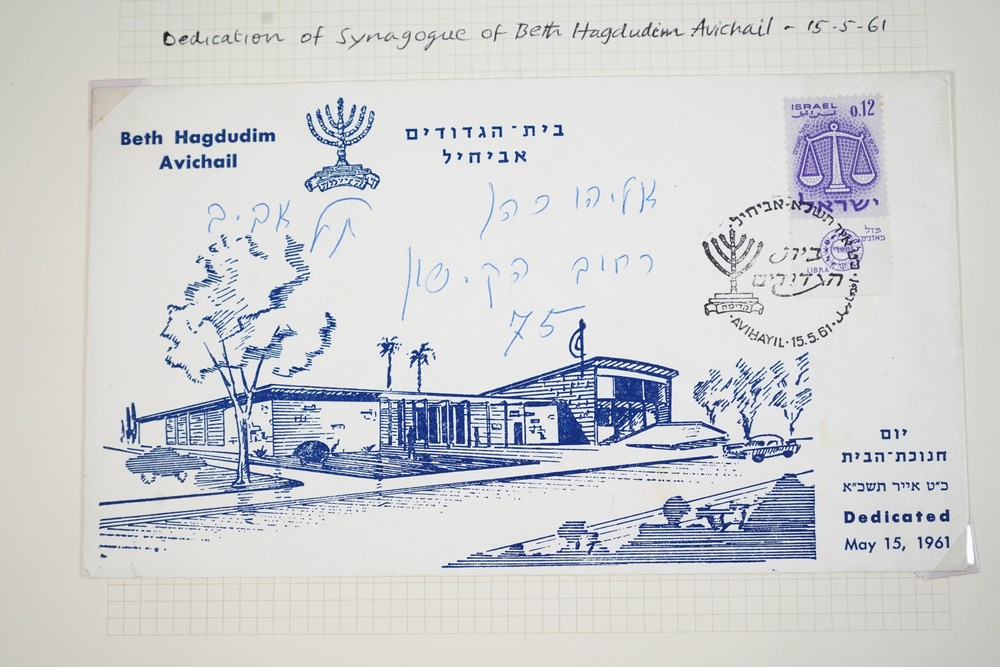 Dedication of Synagogue of Beth Hagdudim Avichail - 15-5-61
Beth Hagdudim
Avichail
קדימה
בית־הגדודים
אביחיל
ISRAEL 0.12
اسرائيل
ישראל
מזל
מאזנים
LIBRA
אליהו כהן
תל אביב
רחוב הקישון
75
אביחיל
בית
הגדודים
קדימה
AVIHAYIL · 15.5.61
יום
חנוכת־הבית
כ״ט אייר תשכ״א
Dedicated
May 15, 1961